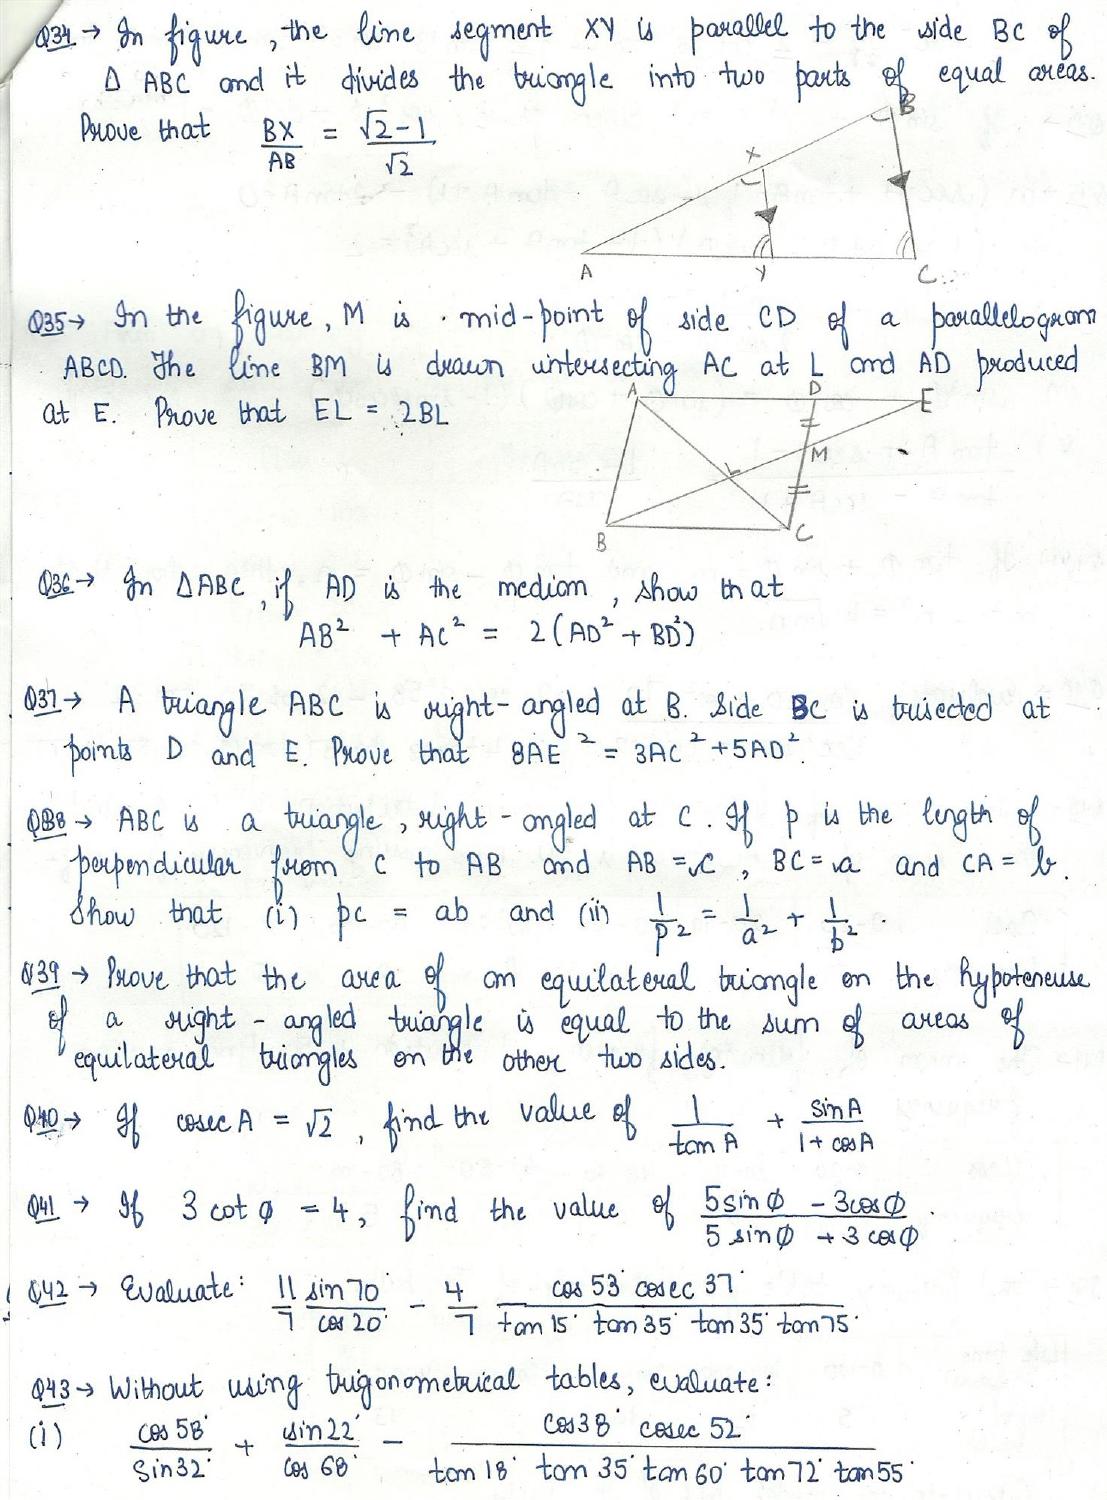 Q34→ In figure, the line segment XY is parallel to the side BC of
Δ ABC and it divides the triangle into two parts of equal areas.
Prove that BX/AB = √2-1/√2
B
X
A
Y
C
Q35→ In the figure, M is mid-point of side CD of a parallelogram
ABCD. The line BM is drawn intersecting AC at L and AD produced
at E. Prove that EL = 2BL
A
D
E
M
L
B
C
Q36→ In ΔABC, if AD is the median, show that
AB² + AC² = 2(AD² + BD²)
Q37→ A triangle ABC is right-angled at B. Side BC is trisected at
points D and E. Prove that 8AE² = 3AC² + 5AD².
Q38→ ABC is a triangle, right-angled at C. If p is the length of
perpendicular from C to AB and AB = c, BC = a and CA = b.
Show that (i) pc = ab and (ii) 1/p² = 1/a² + 1/b².
Q39→ Prove that the area of an equilateral triangle on the hypoteneuse
of a right-angled triangle is equal to the sum of areas of
equilateral triangles on the other two sides.
Q40→ If cosec A = √2, find the value of 1/tan A + sin A/1+cos A
Q41→ If 3 cot φ = 4, find the value of 5 sin φ - 3 cos φ/5 sin φ + 3 cos φ.
Q42→ Evaluate: 11/7 sin 70°/cos 20° - 4/7 cos 53° cosec 37°/tan 15° tan 35° tan 35° tan 75°
Q43→ Without using trigonometrical tables, evaluate:
(i) cos 58°/sin 32° + sin 22°/cos 68° - cos 38° cosec 52°/tan 18° tan 35° tan 60° tan 72° tan 55°